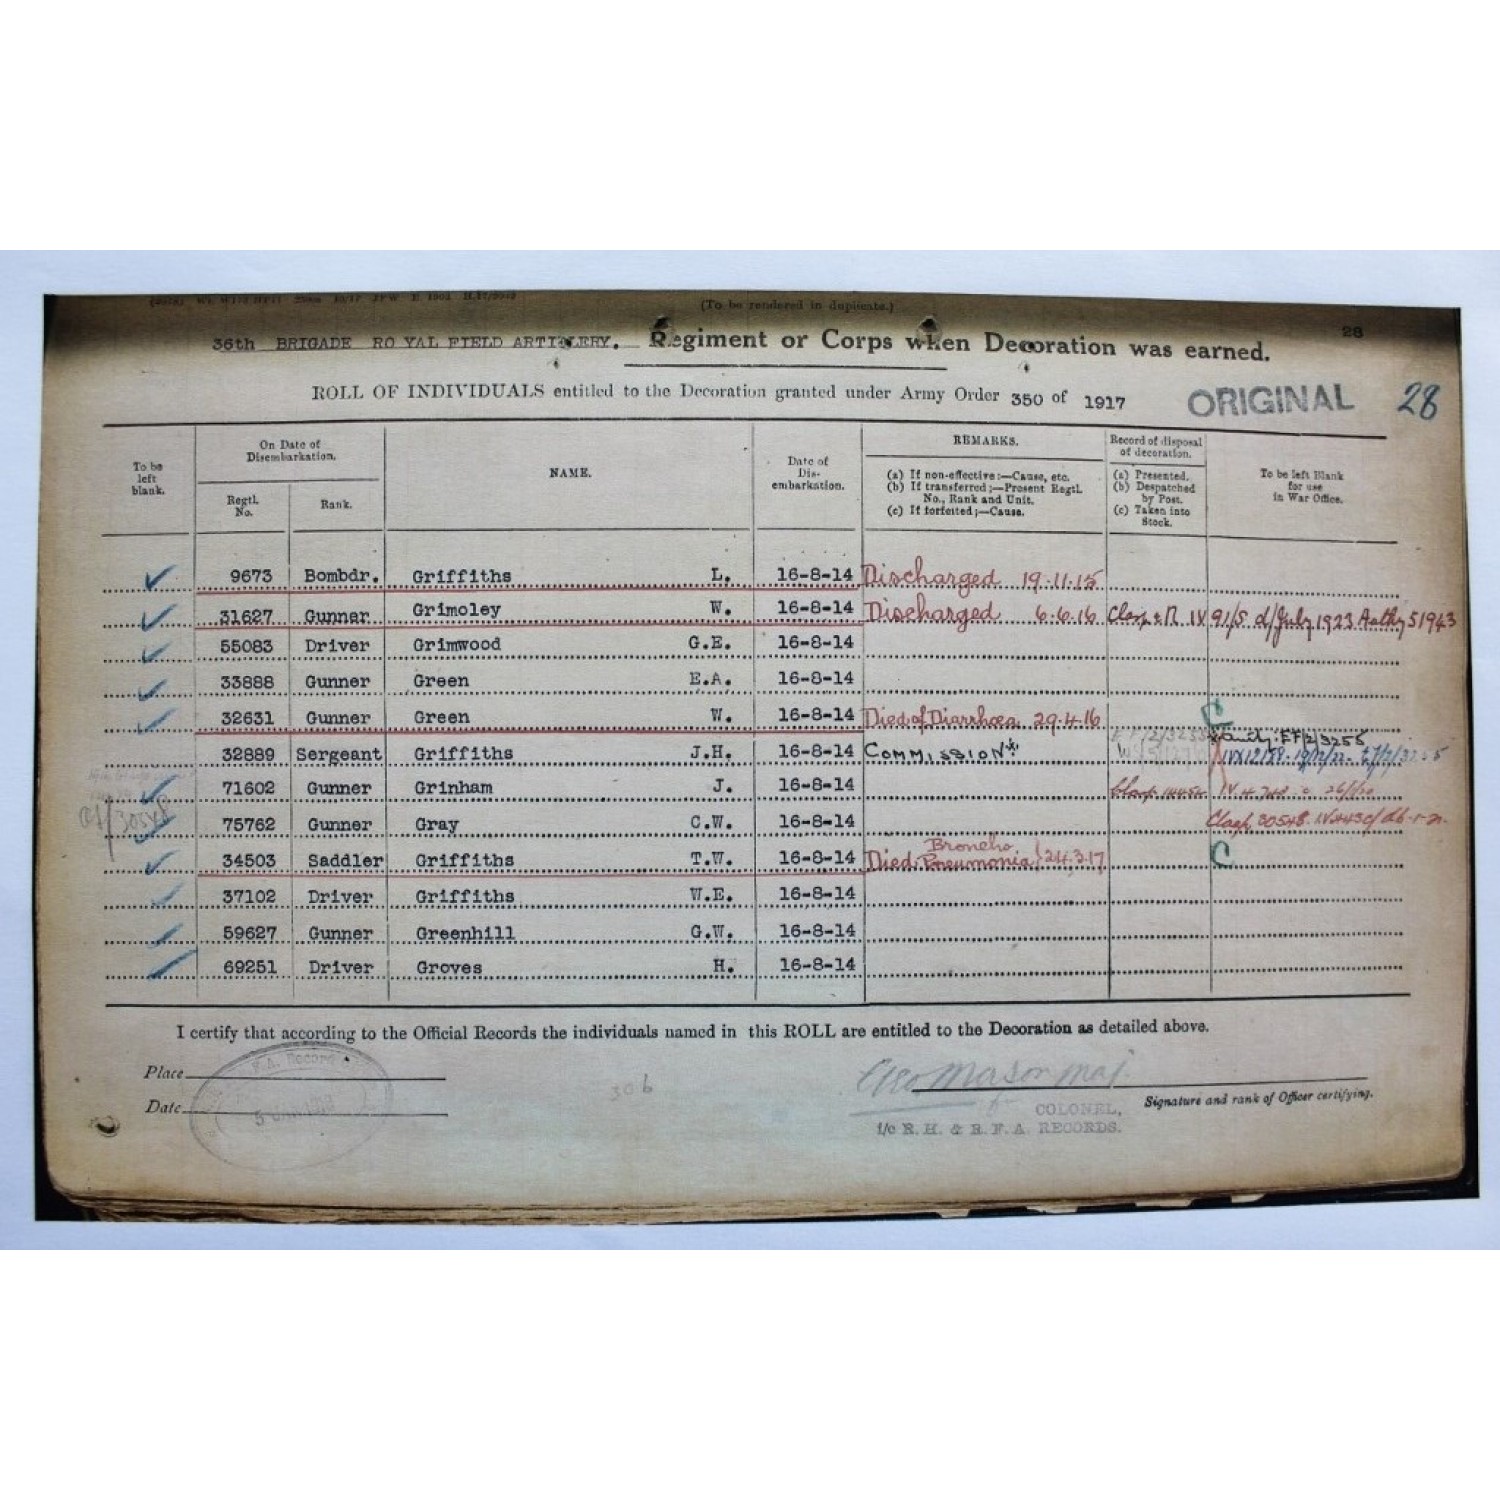 (To be rendered in duplicate.)
28
36th BRIGADE RO YAL FIELD ARTILLERY. Regiment or Corps when Decoration was earned.
ROLL OF INDIVIDUALS entitled to the Decoration granted under Army Order 350 of 1917 ORIGINAL 28
To be left blank.
On Date of Disembarkation.
Regtl. No.
Rank.
NAME.
Date of Dis-embarkation.
REMARKS.
(a) If non-effective:—Cause, etc.
(b) If transferred;—Present Regtl. No., Rank and Unit.
(c) If forfeited;—Cause.
Record of disposal of decoration.
(a) Presented.
(b) Despatched by Post.
(c) Taken into Stock.
To be left Blank for use in War Office.
9673 Bombdr. Griffiths L. 16-8-14 Discharged 19.11.15
31627 Gunner Grimoley W. 16-8-14 Discharged 6.6.16 Clasp & R IV 91/S d/July 1923
55083 Driver Grimwood G.E. 16-8-14
33888 Gunner Green E.A. 16-8-14
32631 Gunner Green W. 16-8-14 Died of Diarrhoea 29.4.16 C
32889 Sergeant Griffiths J.H. 16-8-14 COMMISSION EF/2/3255
71602 Gunner Grinham J. 16-8-14 Clasp
75762 Gunner Gray C.W. 16-8-14 Clasp 30548
34503 Saddler Griffiths T.W. 16-8-14 Died Broncho Pneumonia 24.3.17 C
37102 Driver Griffiths W.E. 16-8-14
59627 Gunner Greenhill G.W. 16-8-14
69251 Driver Groves H. 16-8-14
I certify that according to the Official Records the individuals named in this ROLL are entitled to the Decoration as detailed above.
Place
Date
306
Geo Mason Maj.
Signature and rank of Officer certifying.
COLONEL,
i/c R. H. & R. F. A. RECORDS.